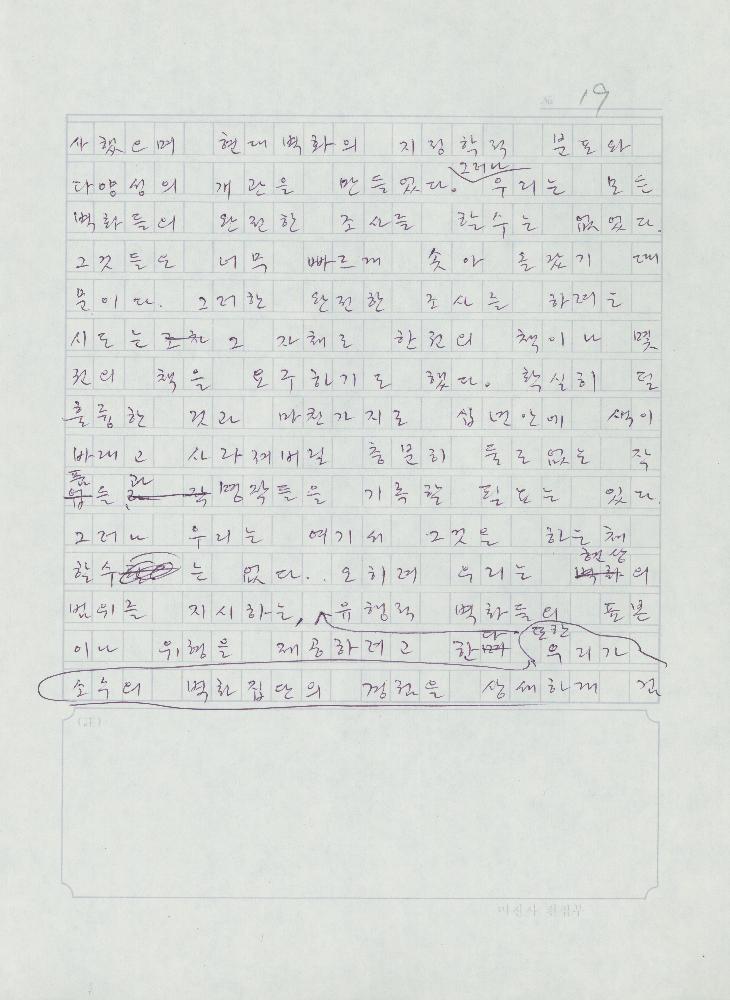 No. 19
사했으며 현대벽화의 지정학적 분포와
그러나
다양성의 개관을 만들었다. 우리는 모든
벽화들의 완전한 조사를 할수는 없었다.
그것들도 너무 빠르게 솟아 올랐기 때
문이다. 그러한 완전한 조사를 하려는
시도는 그 자체로 한권의 책이나 몇
권의 책을 요구하기도 했다. 확실히 덜
훌륭한 것과 마찬가지로 십년안에 색이
바래고 사라져버릴 충분히 들로없는 작
품 과
들 명작들을 기록할 필요는 있다.
그러나 우리는 여기서 그것을 하는체
현상
할수는 없다. 오히려 우리는 벽화의
범위를 지시하는, 유행적 벽화들의 표본
다 또한
이나 위형을 제공하려고 한 우리가
소수의 벽화집단의 경험을 상세하게 검
(註)
미진사 편집부